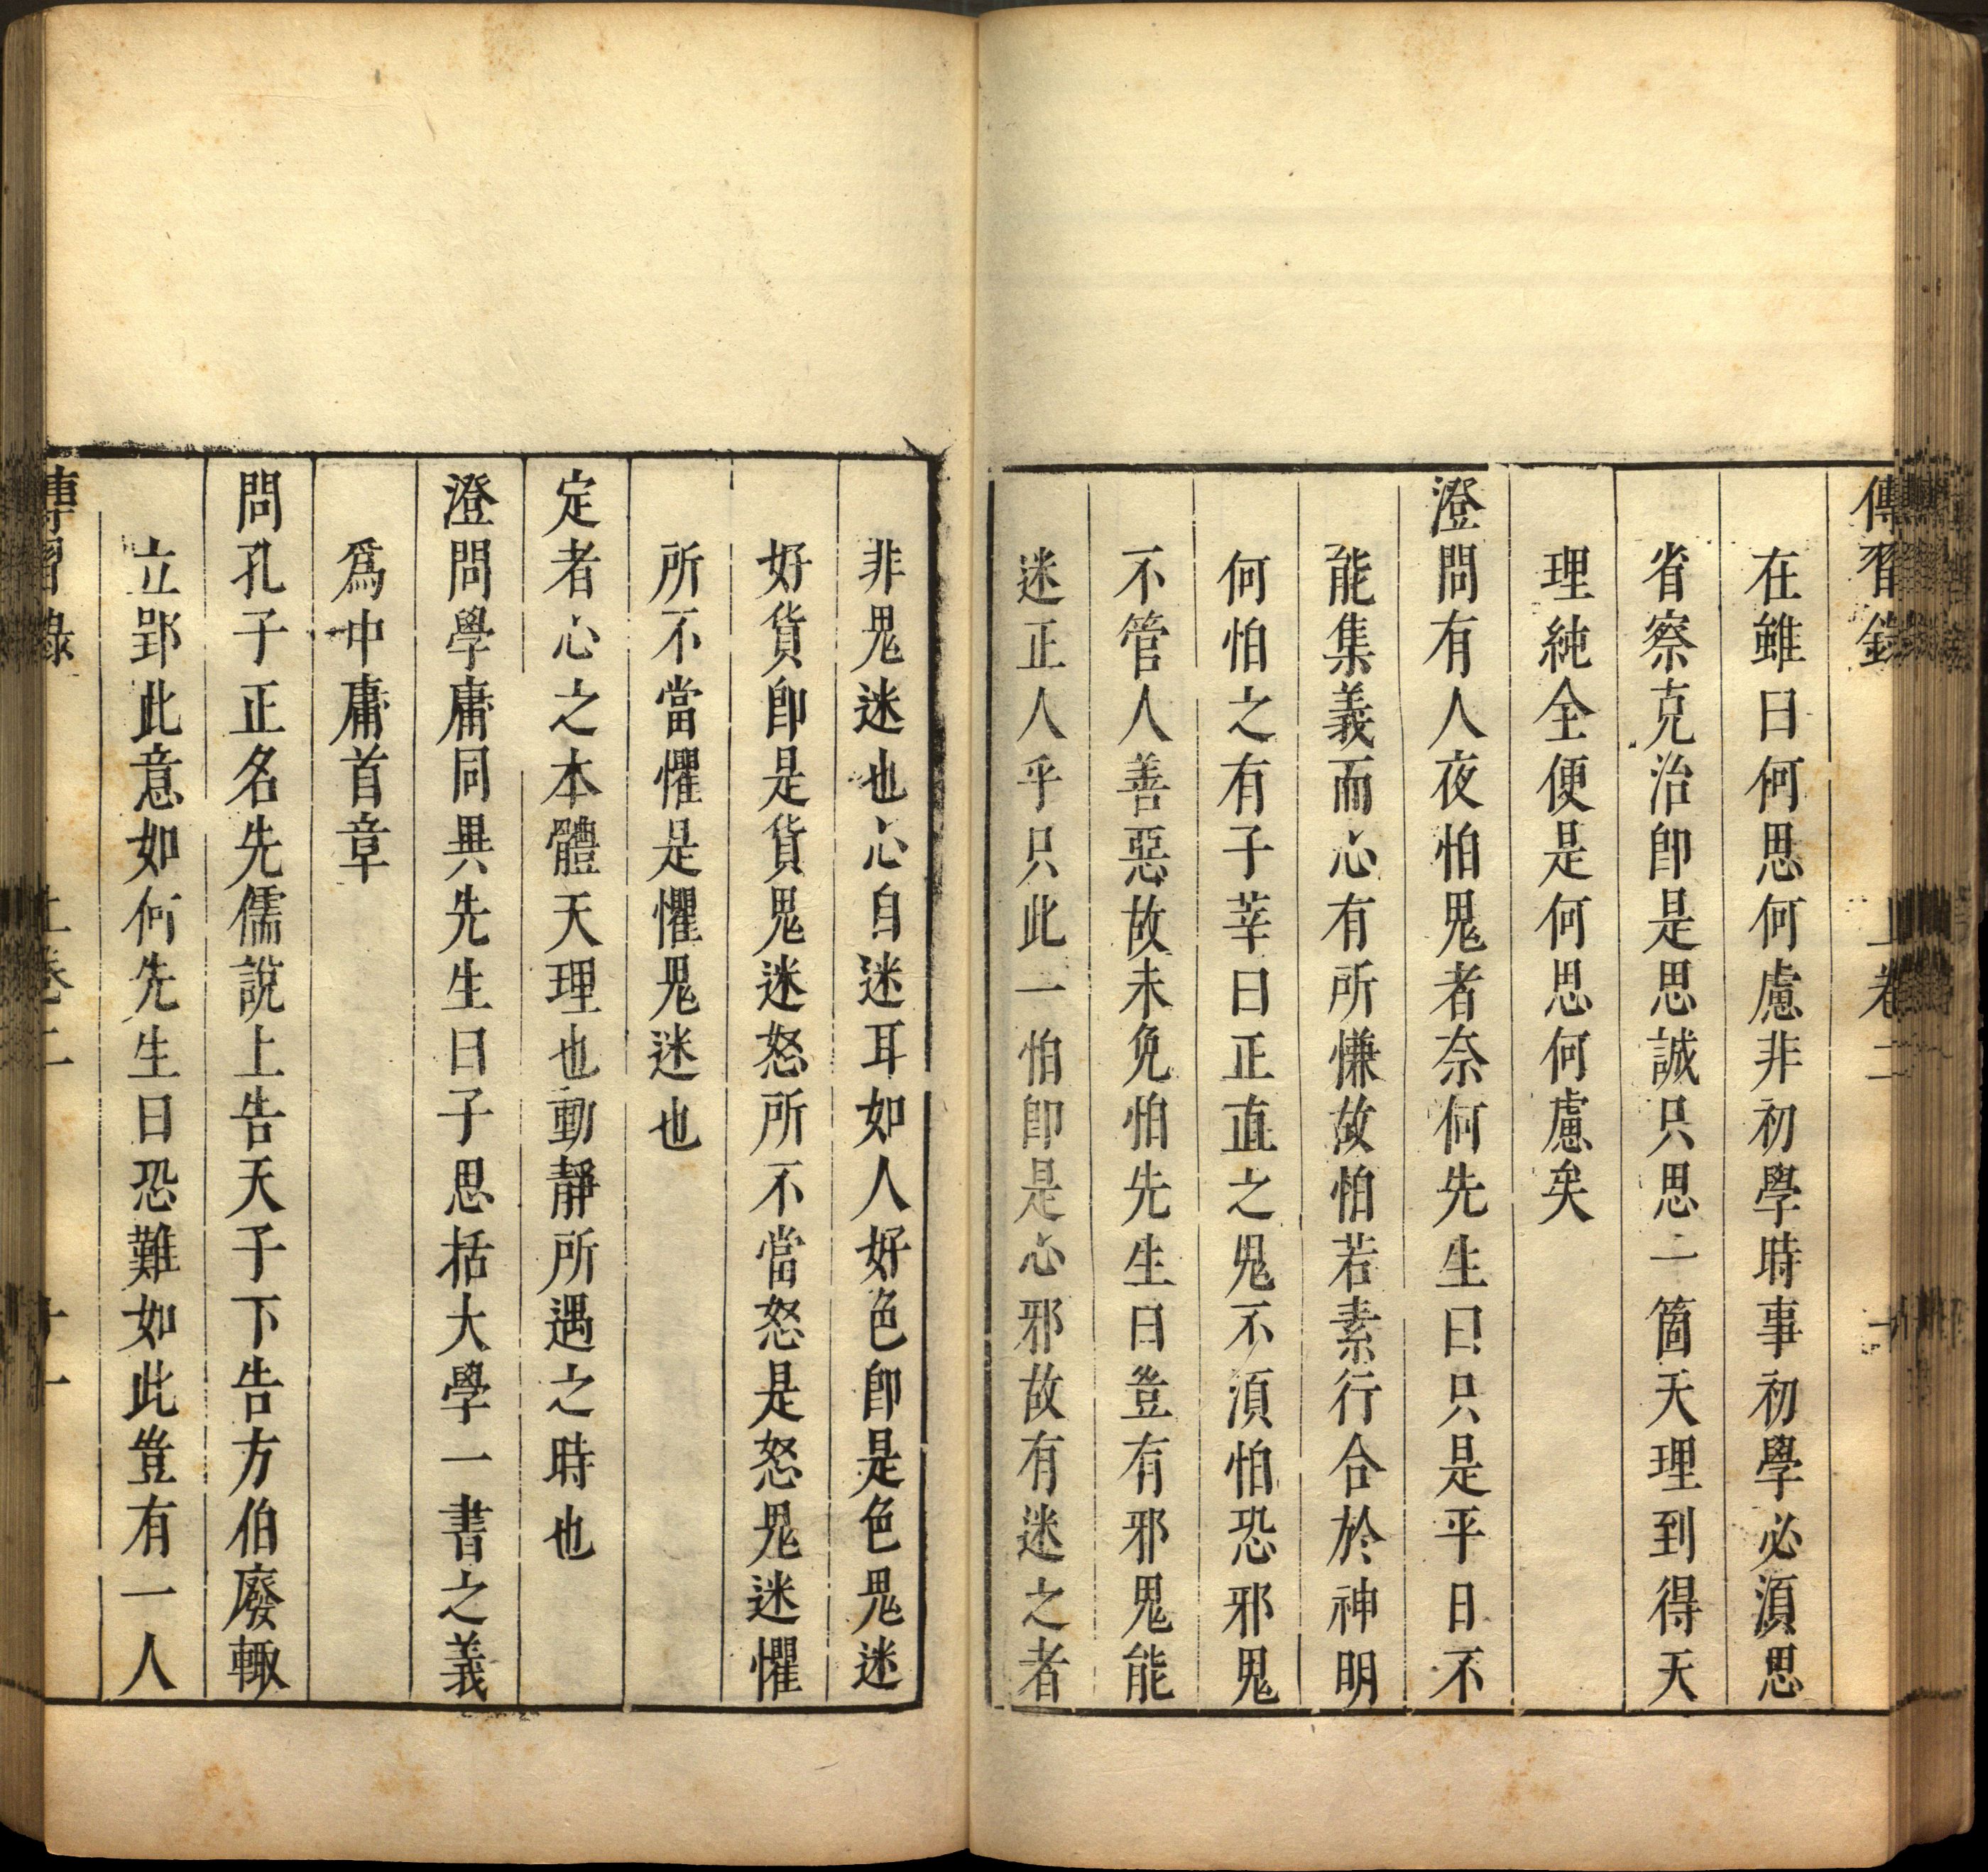 傳習錄 上卷二 十
在雖曰何思何慮非初學時事初學必湏思
省察克治卽是思誠只思一箇天理到得天
理純全便是何思何慮矣
澄問有人夜怕鬼者奈何先生曰只是平日不
能集義而心有所慊故怕若素行合於神明
何怕之有子莘曰正直之鬼不湏怕恐邪鬼
不管人善惡故未免怕先生曰豈有邪鬼能
迷正人乎只此一怕卽是心邪故有迷之者
非鬼迷也心自迷耳如人好色卽是色鬼迷
好貨卽是貨鬼迷怒所不當怒是怒鬼迷懼
所不當懼是懼鬼迷也
定者心之本體天理也動靜所遇之時也
澄問學庸同異先生曰子思括大學一書之義
爲中庸首章
問孔子正名先儒說上告天子下告方伯廢輙
立郢此意如何先生曰恐難如此豈有一人
傳習錄 上卷二 十一